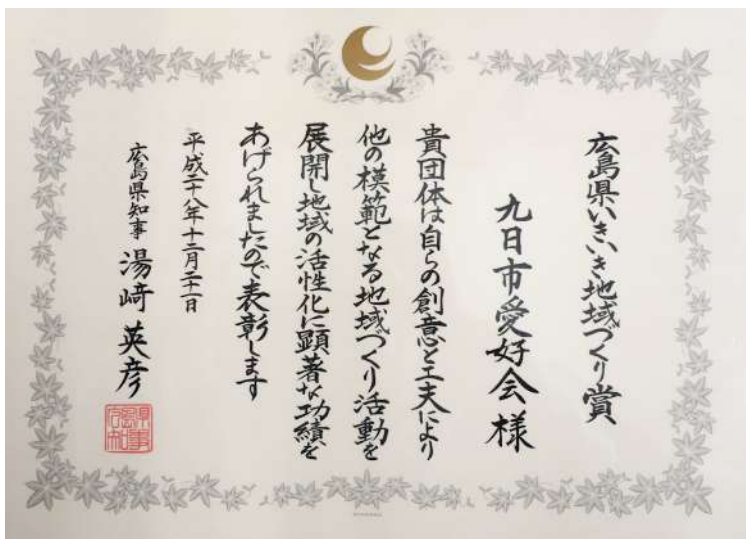 広島県いきいき地域づくり賞
九日市愛好会様
貴団体は自らの創意と工夫により
他の模範となる地域づくり活動を
展開し地域の活性化に顕著な功績を
あげられましたので表彰します
平成二十八年十二月二十一日
広島県知事 湯﨑英彦